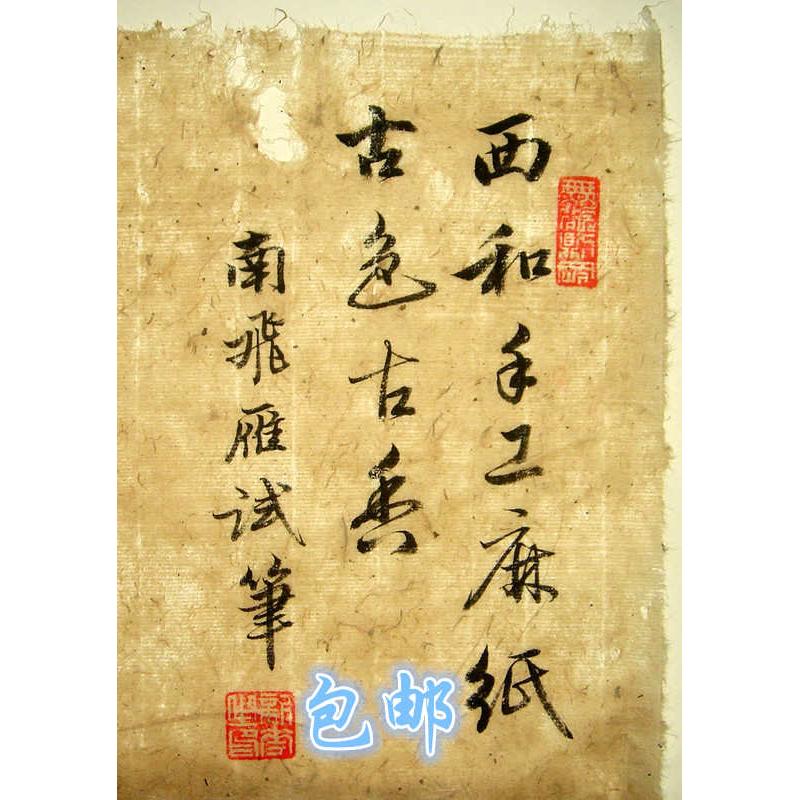 西和手工麻紙
古色古香
南飛雁试筆
包邮